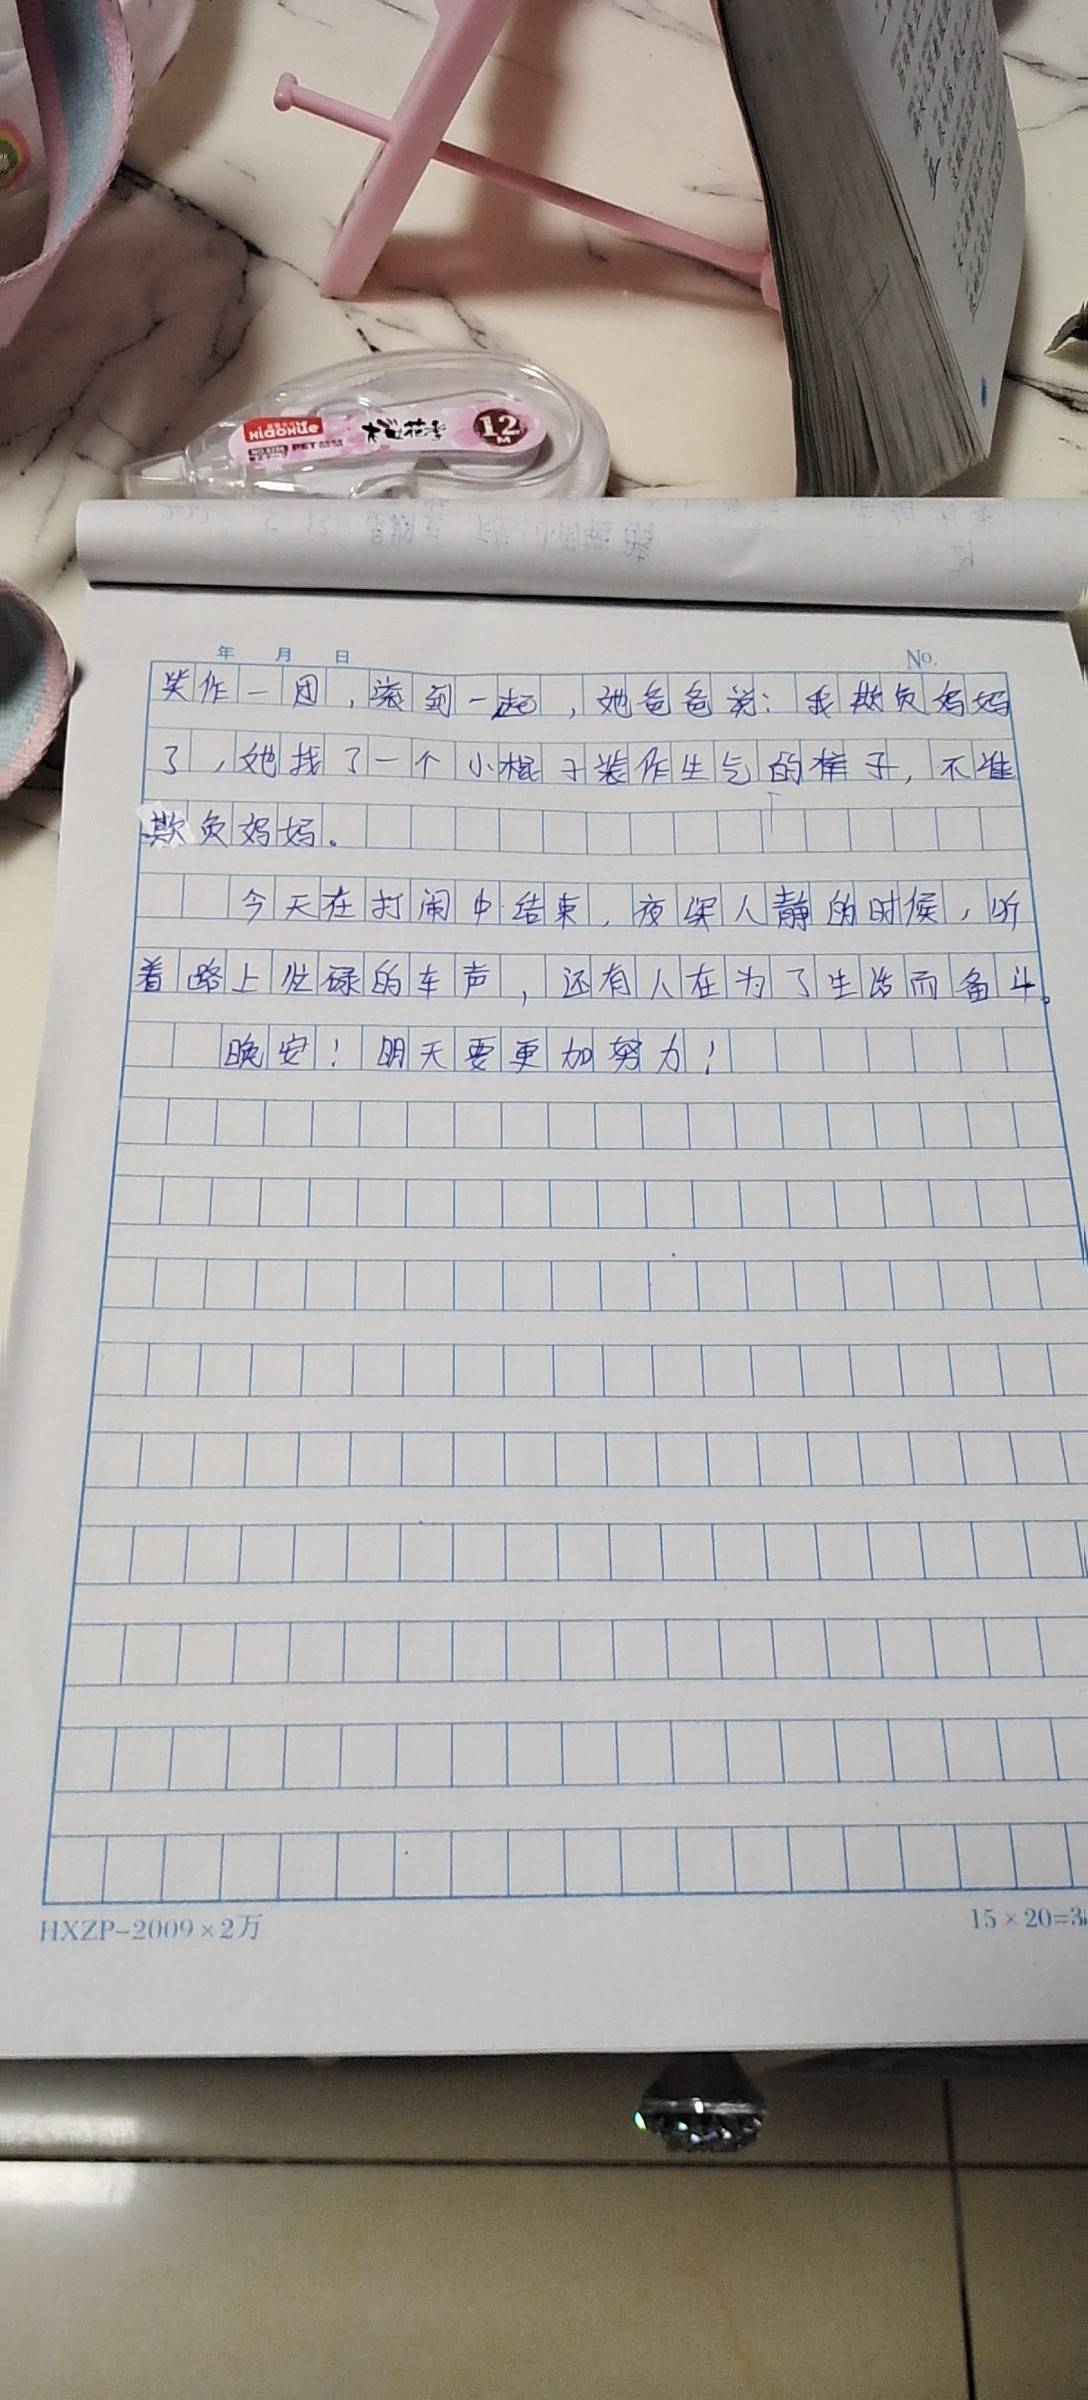 xiaoxue
PET
桜花季
12
M
年 月 日
No.
笑作一团，滚到一起，她爸爸说：我欺负妈妈
了，她找了一个小棍子装作生气的样子，不准
欺负妈妈。
今天在打闹中结束，夜深人静的时候，听
着路上忙碌的车声，还有人在为了生活而备斗。
晚安！明天要更加努力！
HXZP-2009×2万
15×20=3